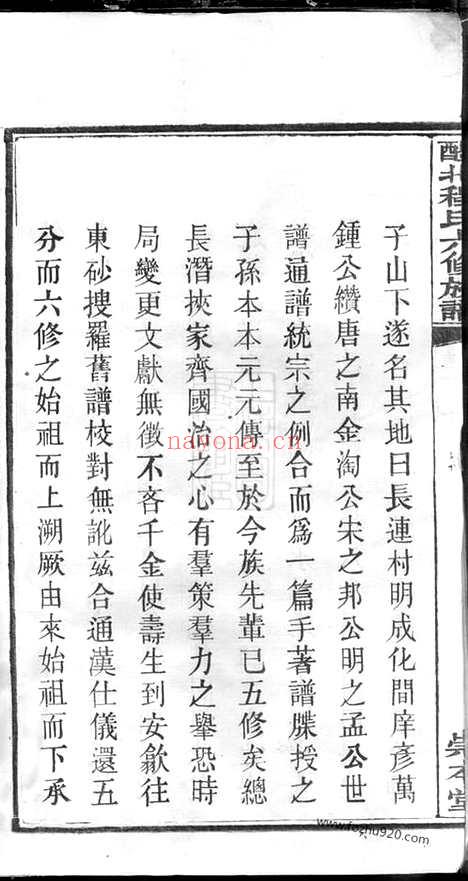 醴北程氏六修族譜
子山下遂名其地曰長連村明成化間庠彥萬
鍾公纘唐之南金淘公宋之邦公明之孟公世
譜通譜統宗之例合而爲一篇手著譜牒授之
子孫本本元元傳至於今族先輩已五修矣總
長潛挾家齊國治之心有羣策羣力之舉恐時
局變更文獻無徵不吝千金使壽生到安歙往
東砂搜羅舊譜校對無訛茲合通漢仕儀還五
分而六修之始祖而上溯厥由來始祖而下承
崇本堂
nayona.cn
www.fozhu920.com